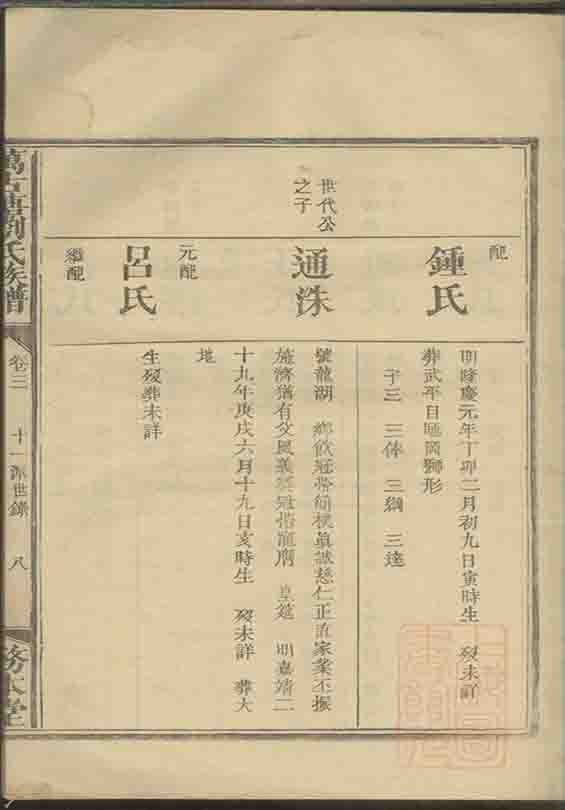 配
鍾氏
明隆慶元年丁卯二月初九日寅時生 歿未詳
葬武平目 獅形
子三 三俸 三綱 三達
世代公
之子
通洙
號龍湖 鄉飲冠帶簡樸眞誠慈仁正直家業丕振
施濟猶有父風義 冠 皇筵 明嘉靖二
十九年庚戌六月十九日亥時生 歿未詳 葬大
地
元配
呂氏
生歿葬未詳
繼配
劉氏族譜
卷三
十一派世錄
八
務本堂